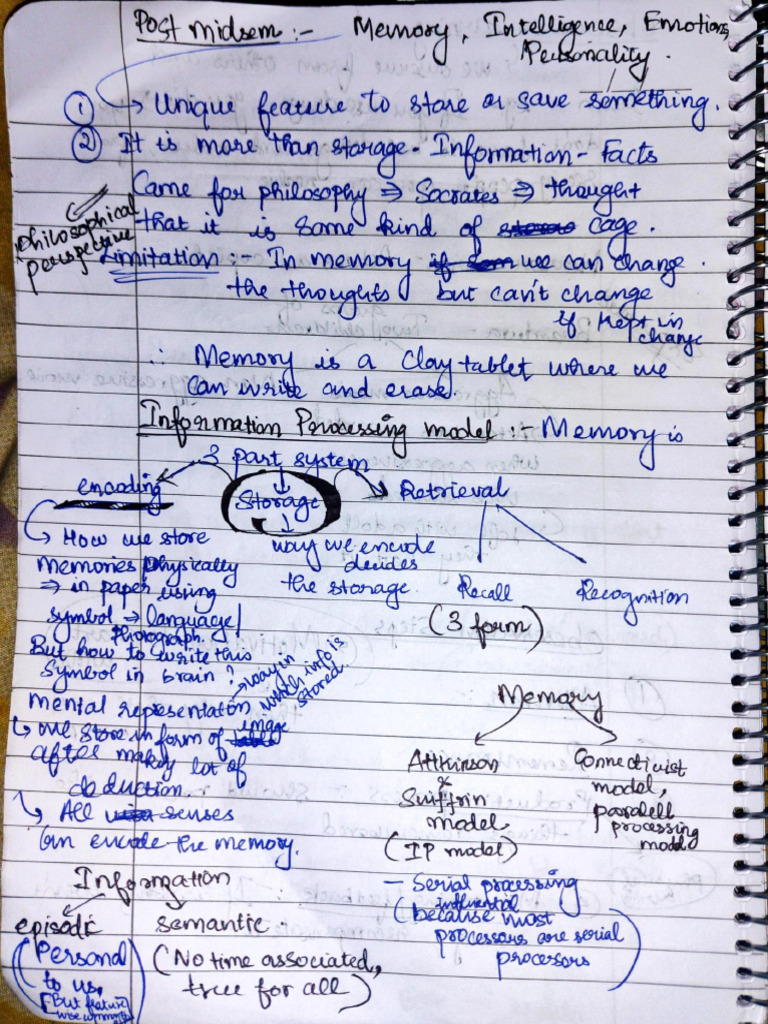 Post midsem :- Memory, Intelligence, Emotions,
Personality.
① → Unique feature to store or save something.
② It is more than storage - Information - Facts
Came for philosophy ⇒ Socrates ⇒ thought
that it is some kind of cage.
philosophical
perspective
Limitation :- In memory we can change
the thoughts but can't change
if kept in
change
∴ Memory is a clay tablet where we
can write and erase
Information Processing model :- Memory is
3 part system
encoding
Storage
Retrieval
→ How we store
memories physically
⇒ in paper using
symbol → language/
Photograph.
But how to write this
symbol in brain?
mental representation → way in
which info is
stored.
↳ one store in form of image
after making lot of
deduction
↳ All senses
can encode the memory.
way we encode
decides
the storage.
Recall
Recognition
(3 form)
Memory
Attkinson
&
Suiffrin
model
(IP model)
Connectivist
model,
paralell
processing
model
- Serial processing
influential
(because most
processors are serial
procesors)
Information
episodic
semantic
(Personal
to us,
But feature
wise
(No time associated,
true for all)